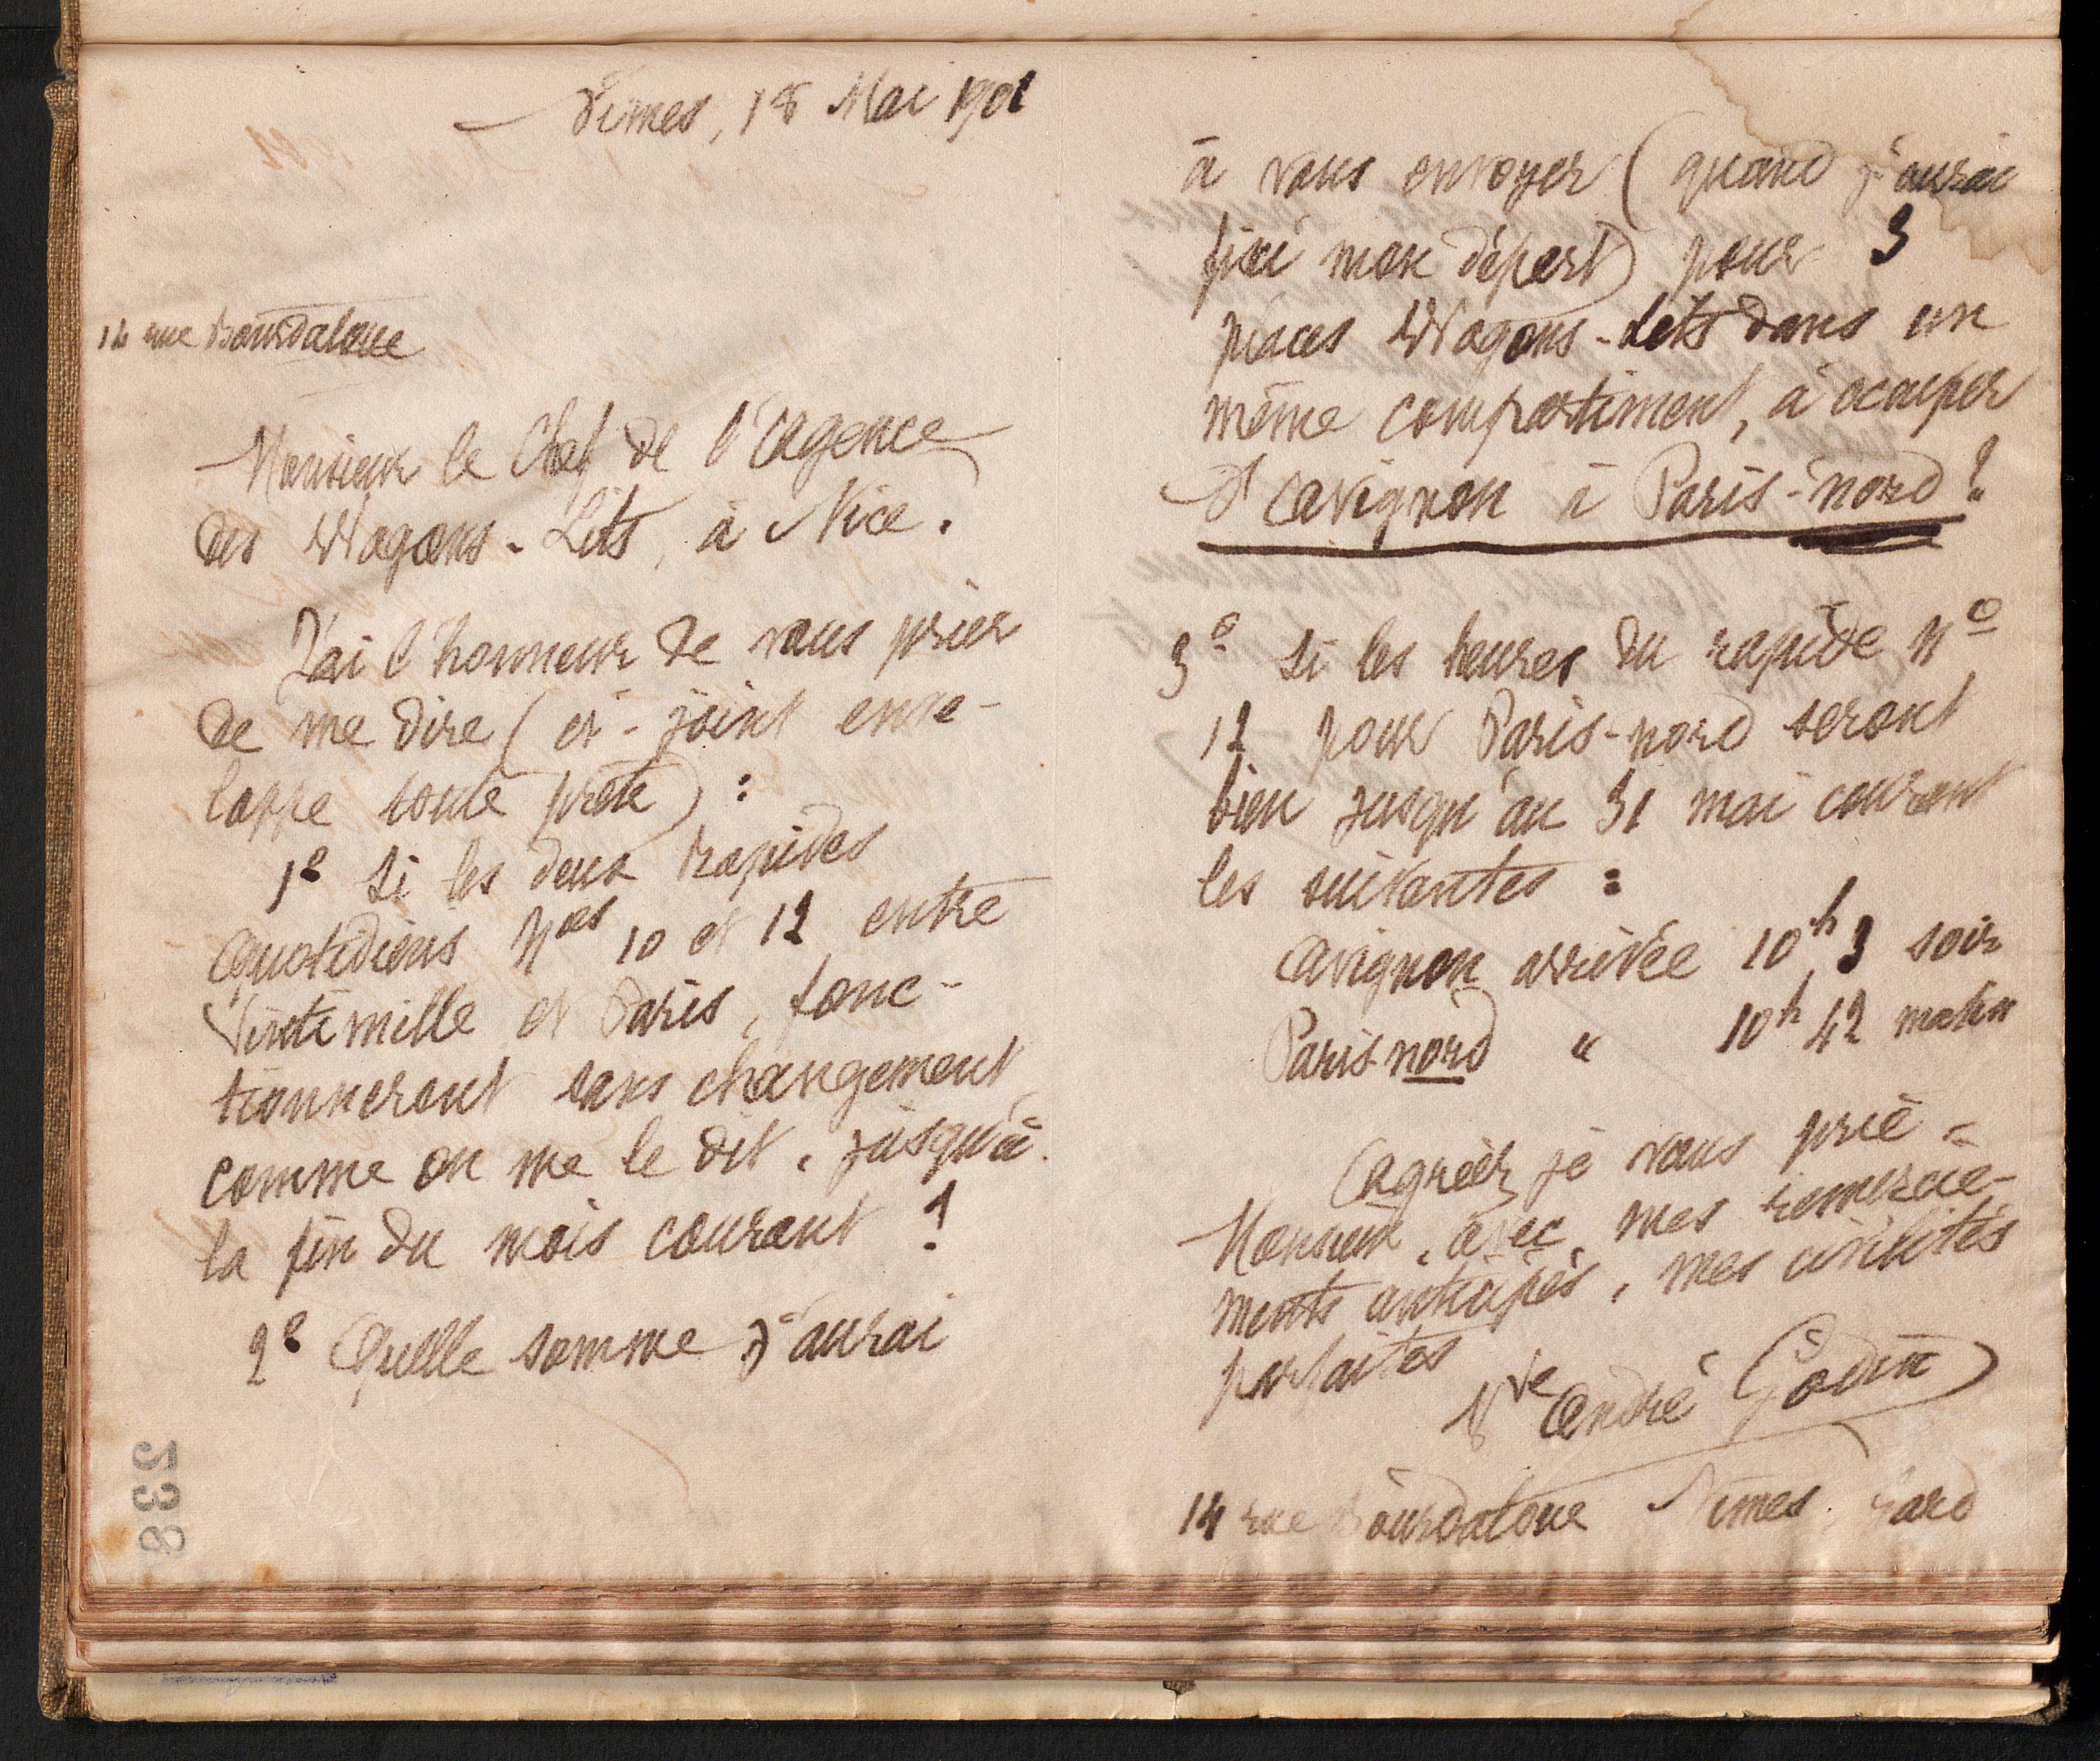 Nîmes, 18 Mai 1901
14 rue Bourdaloue
Monsieur le Chef de l'Agence
des Wagons-Lits, à Nice.
J'ai l'honneur de vous prier
de me dire (ci-joint enve-
loppe toute prête) :
1º Si les deux rapides
quotidiens Nos 10 et 12 entre
Vintimille et Paris, fonc-
tionneront sans changement,
comme on me le dit, jusqu'à
la fin du mois courant ?
2º Quelle somme j'aurai
238
à vous envoyer (quand j'aurai
fixé mon départ) pour 3
places Wagons-Lits dans un
même compartiment, à occuper
d'Avignon à Paris-nord ?
3º Si les heures du rapide Nº
12 pour Paris-nord seront
bien jusqu'au 31 mai courant
les suivantes :
Avignon arrivée 10h,3 soir
Paris nord " 10h 42 matin
Agréez je vous prie,
Monsieur, avec mes remercie-
ments anticipés, mes civilités
parfaites
Vve André Godin
14 rue Bourdaloue Nîmes, Gard